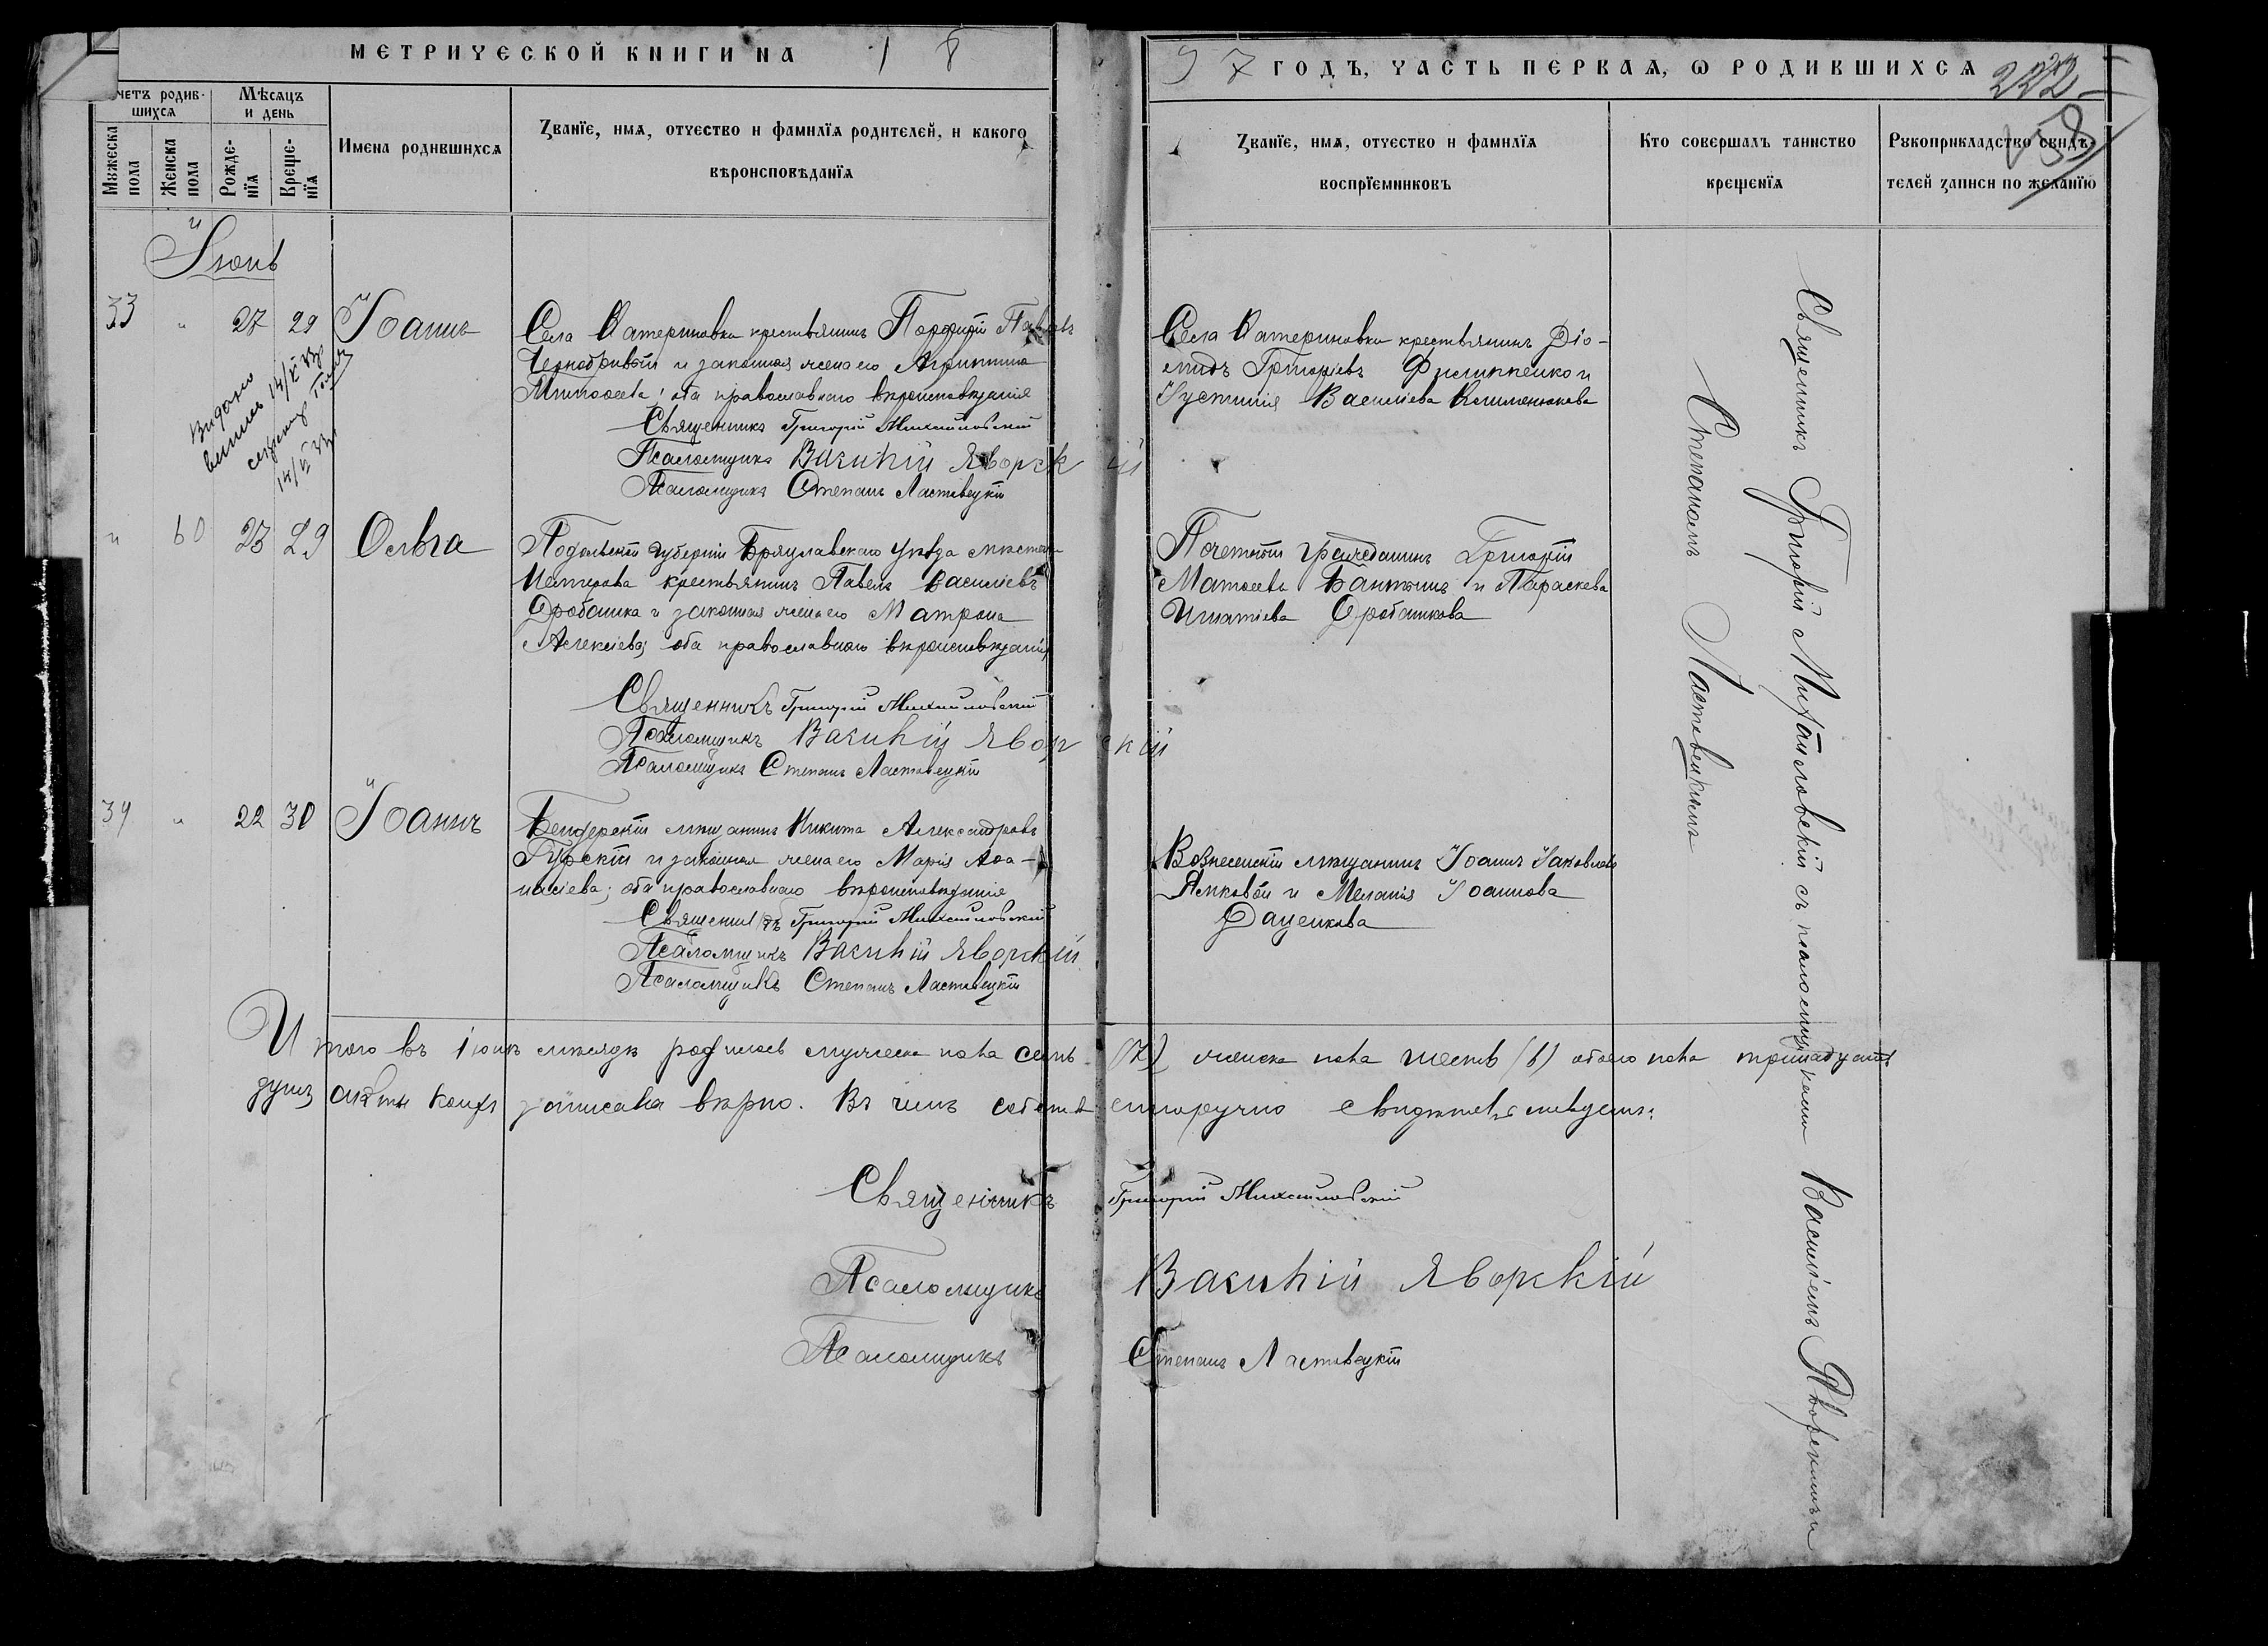 МЕТРИЧЕСКОЙ КНИГИ НА 18
97 ГОДЪ, ЧАСТЬ ПЕРВАЯ, Ѡ РОДИВШИХСЯ
222
четъ родив-
шихся
Мужеска пола
Женска пола
Мѣсяцъ и день
Рожде-нїя
Креще-нїя
Имена родившихся
Званїе, имя, отчество и фамилїя родителей, и какого
вѣроисповѣданїя
Званїе, имя, отчество и фамилїя
воспрїемниковъ
Кто совершалъ таинство
крещенїя
Рукоприкладство свидѣ-
телей записи по желанїю
Іюнь
33 " 27 29 Іоаннъ
Села Катериновки крестьянинъ Порфирій
Чернобривый и законная жена его Агриппина
оба православнаго вѣроисповѣданія
Священникъ Григорій Михайловскій
Псаломщикъ Василій Яворскій
Псаломщикъ Степанъ Ластовецкій
Села Катериновки крестьянинъ Діо-
мидъ Григоріевъ Филиппенко и
Іустинія Василіева Клименюкова
" 60 23 29 Ольга
Подольской губерніи Брацлавскаго уѣзда
крестьянинъ Павелъ Василіевъ
Дробашка и законная жена его Матрона
Алексіева; оба православнаго вѣроисповѣданія
Священникъ Григорій Михайловскій
Псаломщикъ Василій Яворскій
Псаломщикъ Степанъ Ластовецкій
Почетный гражданинъ Григорій
Матѳеевъ и Параскева
Игнатіева Дробашкова
34 " 22 30 Іоаннъ
Бендерскій мѣщанинъ Никита Александровъ
Гурскій и законная жена его Марія Аѳа-
насіева; оба православнаго вѣроисповѣданія
Священникъ Григорій Михайловскій
Псаломщикъ Василій Яворскій
Псаломщикъ Степанъ Ластовецкій
Вознесенскій мѣщанинъ Іоаннъ Іаковлевъ
Ямковой и Меланія Іоаннова
Даценкова
Священникъ Григорій Михайловскій съ псаломщиками Василіемъ Яворскимъ и
Степаномъ Ластовецкимъ
Итого въ іюнѣ мѣсяцѣ родилось мужеска пола семь (7), женска пола шесть (6) обоего пола тринадцать
душъ актъ коихъ записанъ вѣрно. Въ чемъ собственноручно свидѣтельствуемъ:
Священникъ Григорій Михайловскій
Псаломщикъ Василій Яворскій
Псаломщикъ Степанъ Ластовецкій